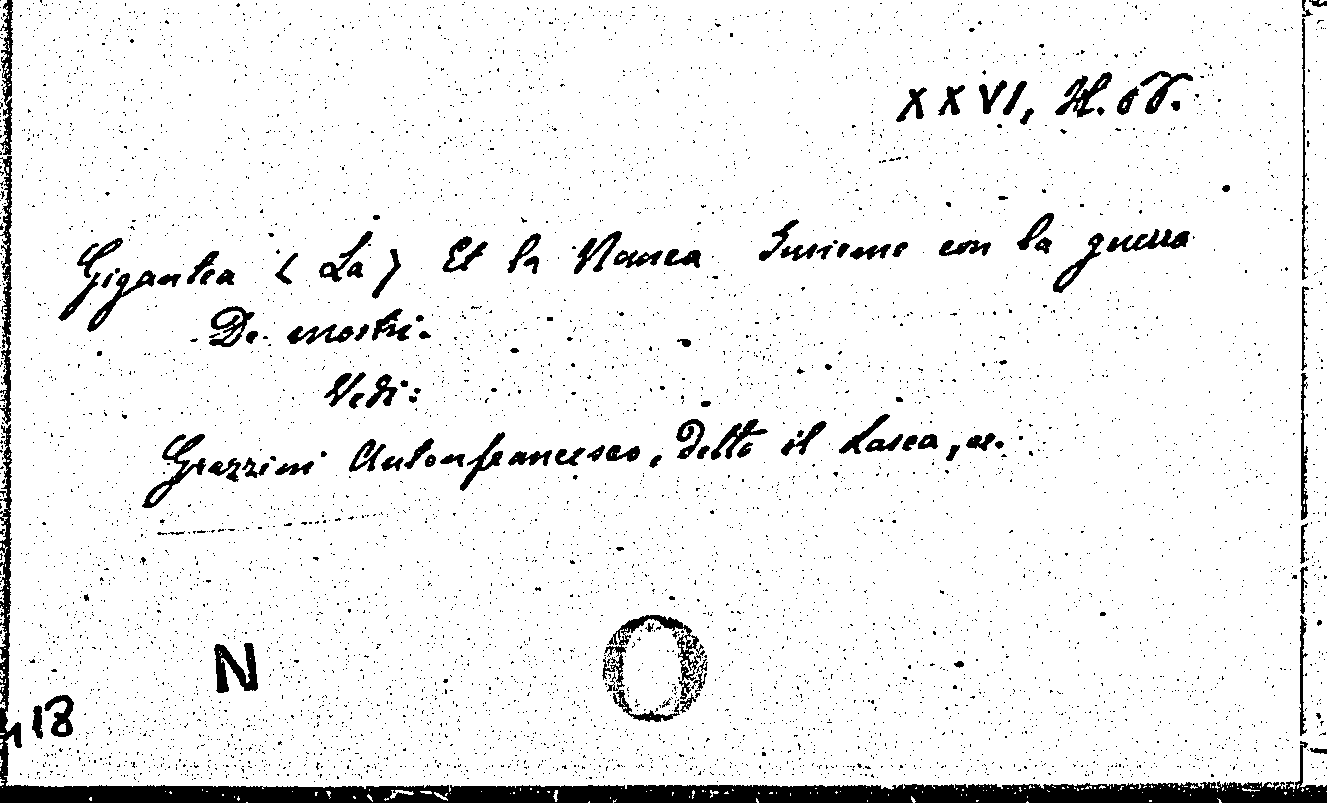 XXVI, H. 68.
Gigantea (La) Et la Nanea Insieme con la guerra
De mostri.
Vedi:
Grazzini Antonfrancesco, detto il Lasca, ec.
N
418